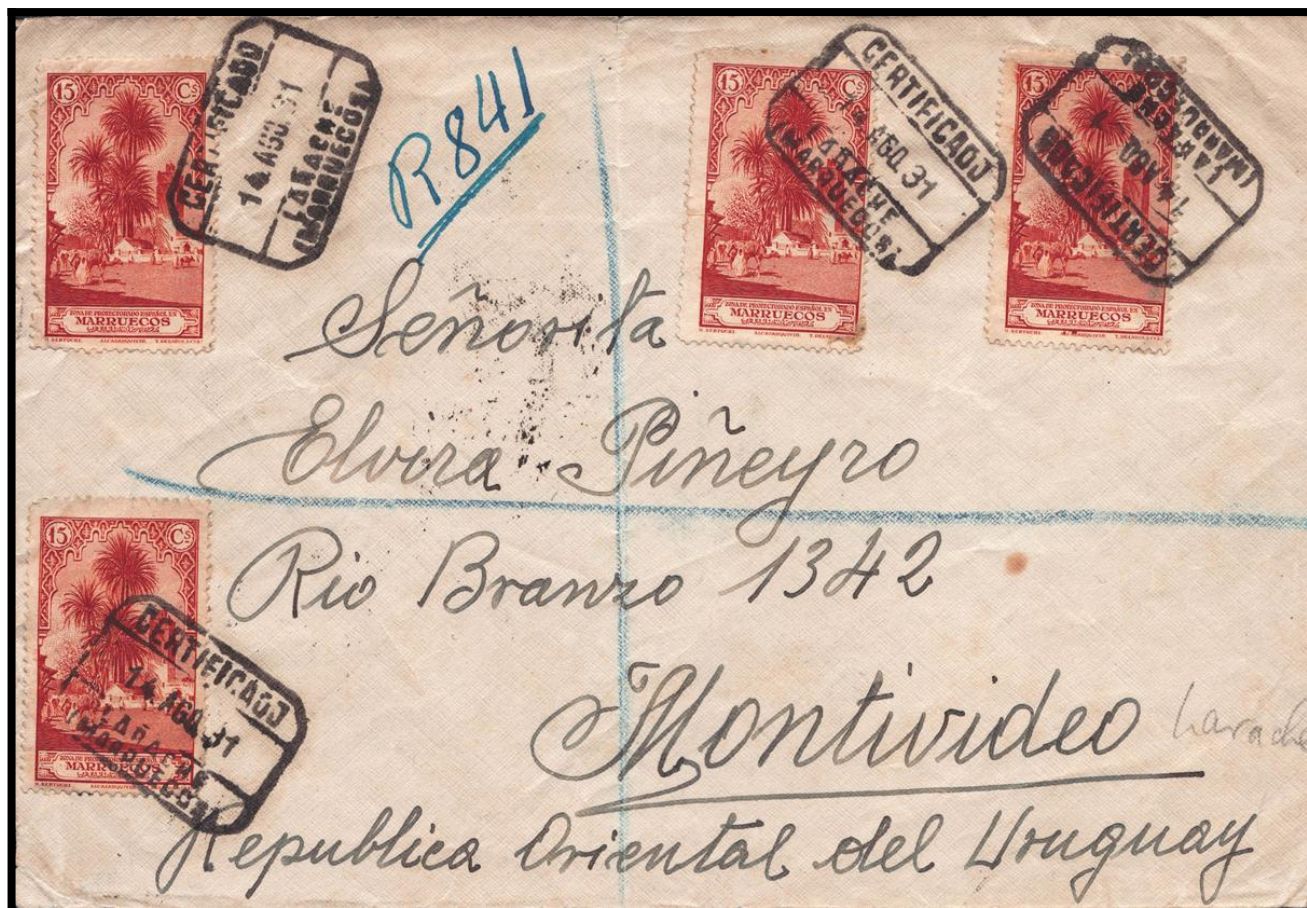 15 Cs
ZONA DE PROTECTORADO ESPAÑOL EN
MARRUECOS
CERTIFICADO
14 AGO. 31
LARACHE
(MARRUECOS)
R841
15 Cs
ZONA DE PROTECTORADO ESPAÑOL EN
MARRUECOS
CERTIFICADO
14 AGO. 31
LARACHE
(MARRUECOS)
15 Cs
ZONA DE PROTECTORADO ESPAÑOL EN
MARRUECOS
CERTIFICADO
14 AGO
LARACHE
(MARRUECOS)
Señorita
Elvira Piñeyro
Rio Branzo 1342
Montivideo
Larache
Republica Oriental del Uruguay
15 Cs
ZONA DE PROTECTORADO ESPAÑOL EN
MARRUECOS
CERTIFICADO
14 AGO. 31
LARACHE
(MARRUECOS)